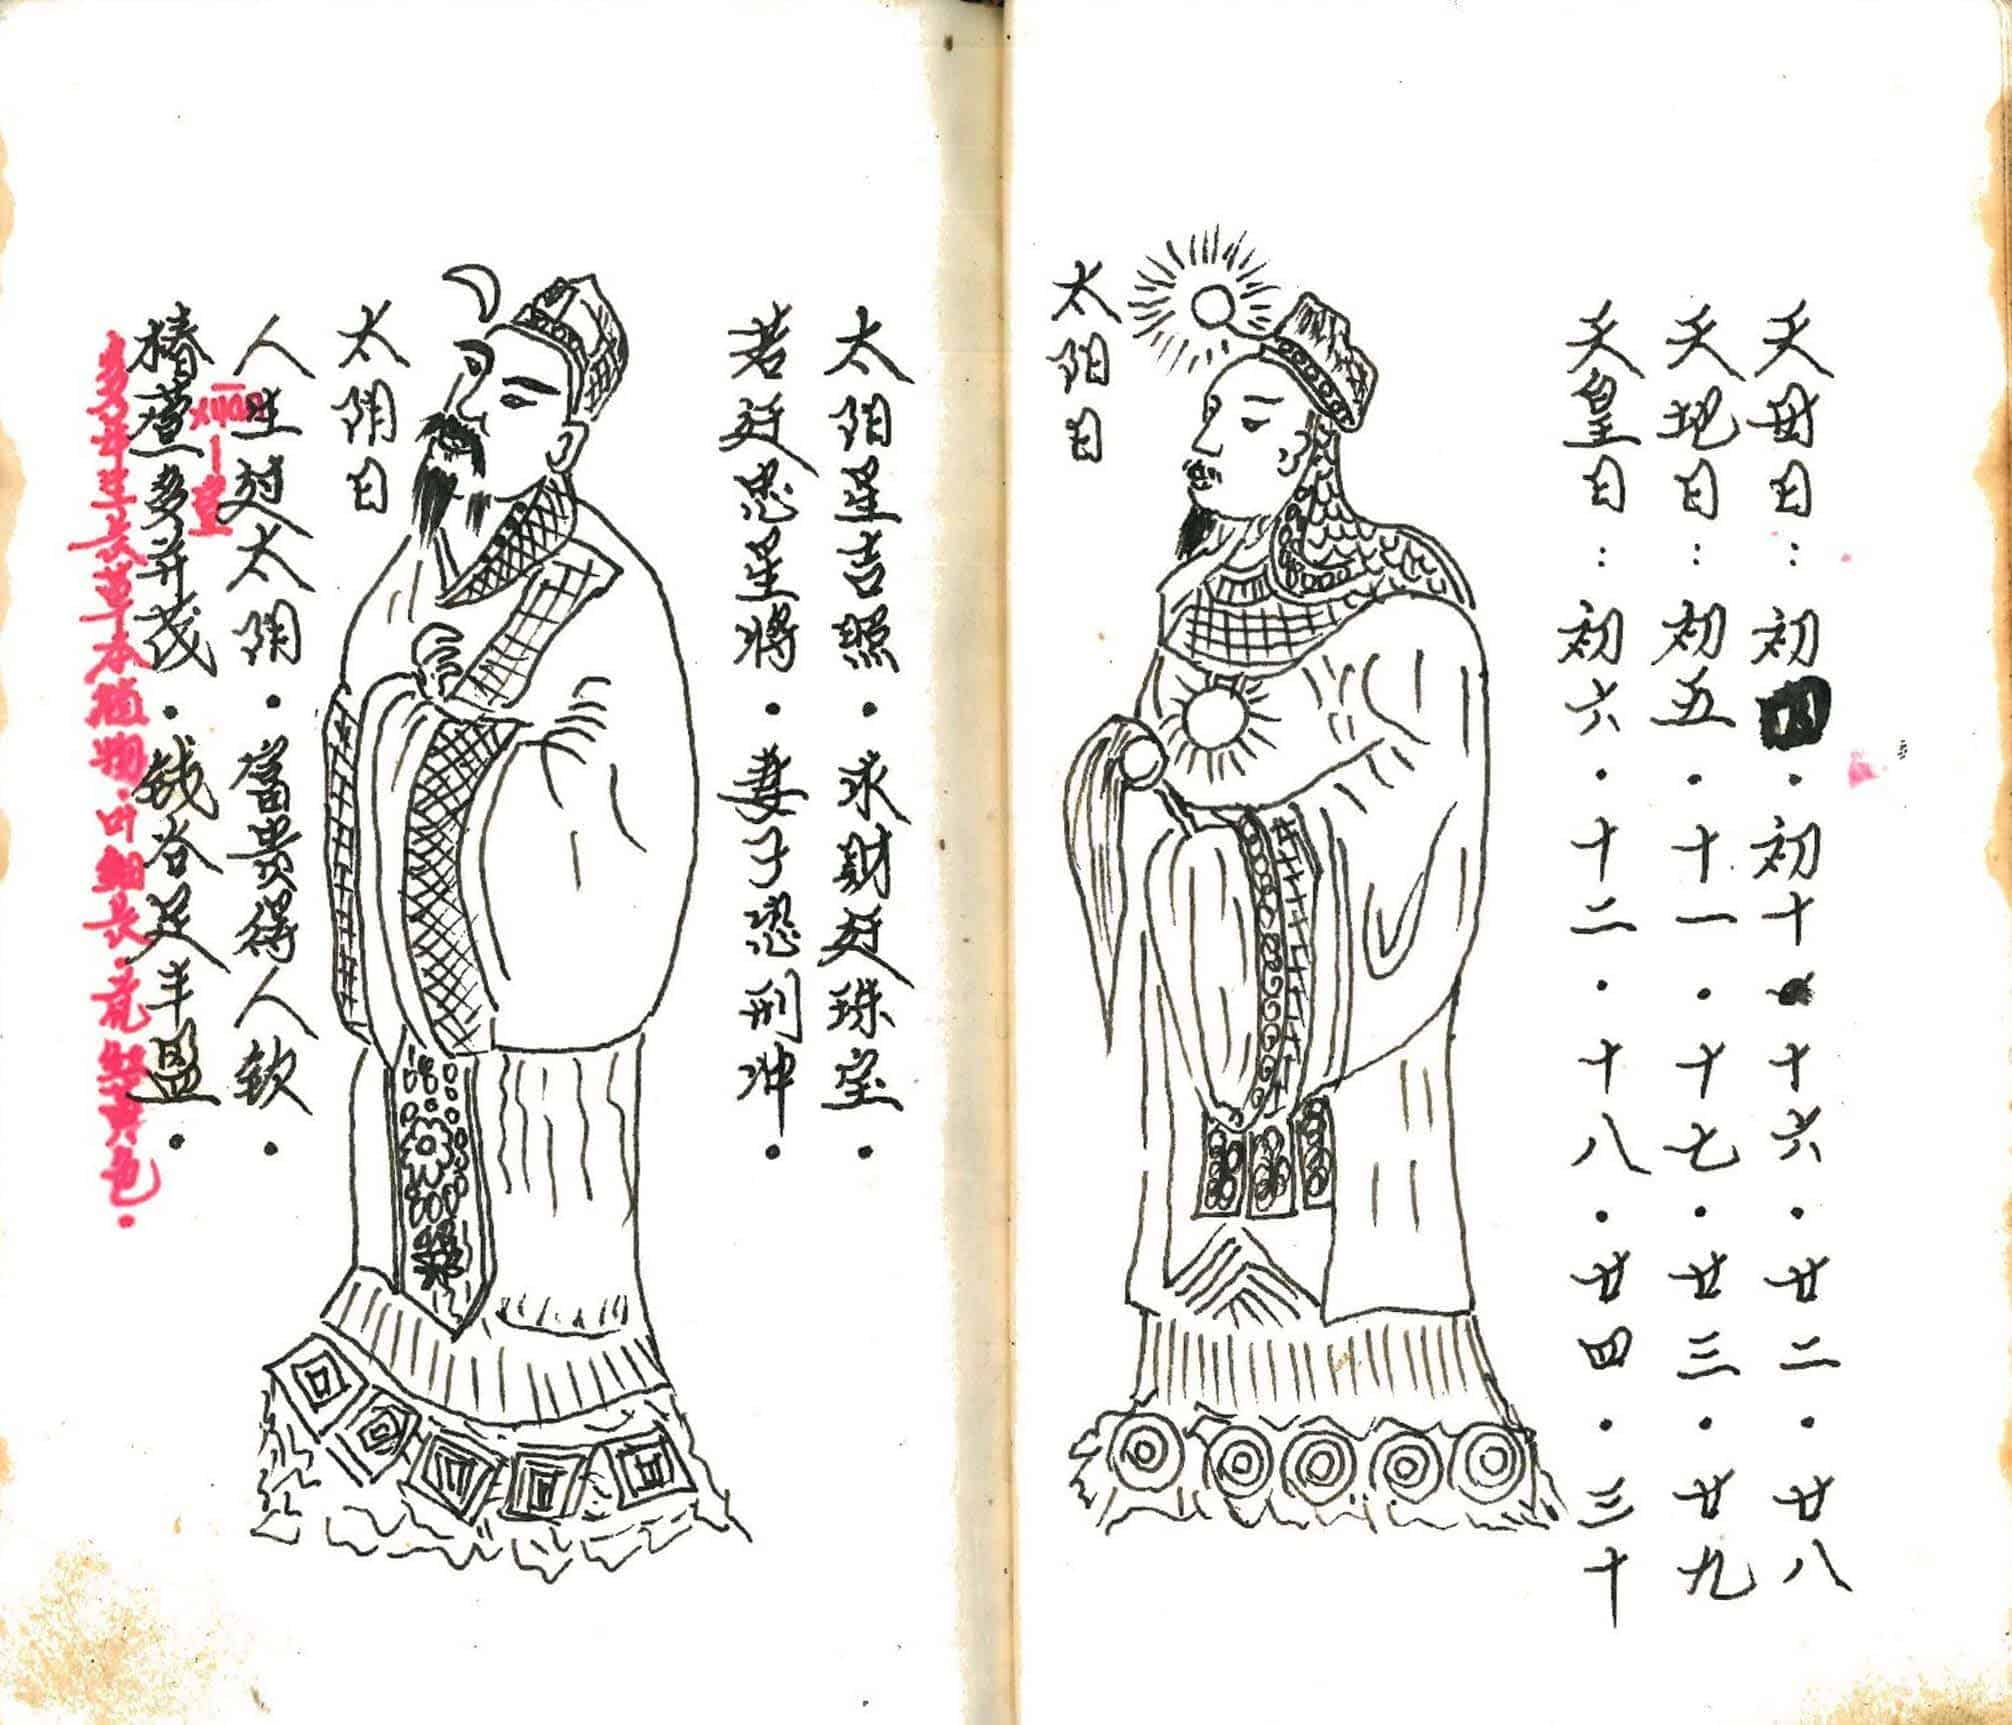 天母日：初四·初十·十六·廿二·廿八
天地日：初五·十一·十七·廿三·廿九
天皇日：初六·十二·十八·廿四·三十
太阳日
太阳星吉照·求财廷珠宝·
若廷恶星将·妻子恐刑冲·
太阴日
人生对太阴·富贵得人欽·
xuān
丨萱
椿萱多并茂·钱谷足丰盈·
多年生长草本植物·叶细长·花红黄色·